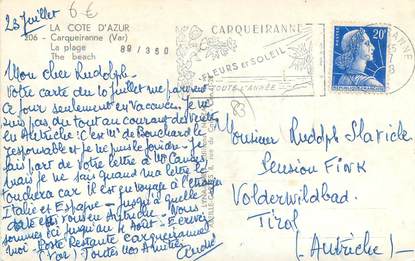 23 juillet
6 €
LA COTE D'AZUR
206 - Carqueiranne (Var)
La plage
The beach
89/360
CARQUEIRANNE
FLEURS et SOLEIL
TOUTE L'ANNÉE
20F
Mon cher Rudolph -
Votre carte du 10 juillet me parvient
ce jour seulement en Vacances. Je ne
suis pas du tout au courant des
en Autriche c'est Mr de Bouchard
responsable et je ne puis le joindre - Je
fais part de votre lettre à Mr
mais je ne sais quand ma lettre le
touchera car il est en voyage à l'étranger
Italie et Espagne - jusqu'à quelle
date êtes vous en Autriche - Nous
sommes ici jusqu'au 4 Août - Ecrivez
moi - Poste Restante Carqueiranne
(Var) Toutes nos Amitiés
André
Monsieur Rudolph
Pension Fink
Volderwildbad
Tirol
(Autriche)